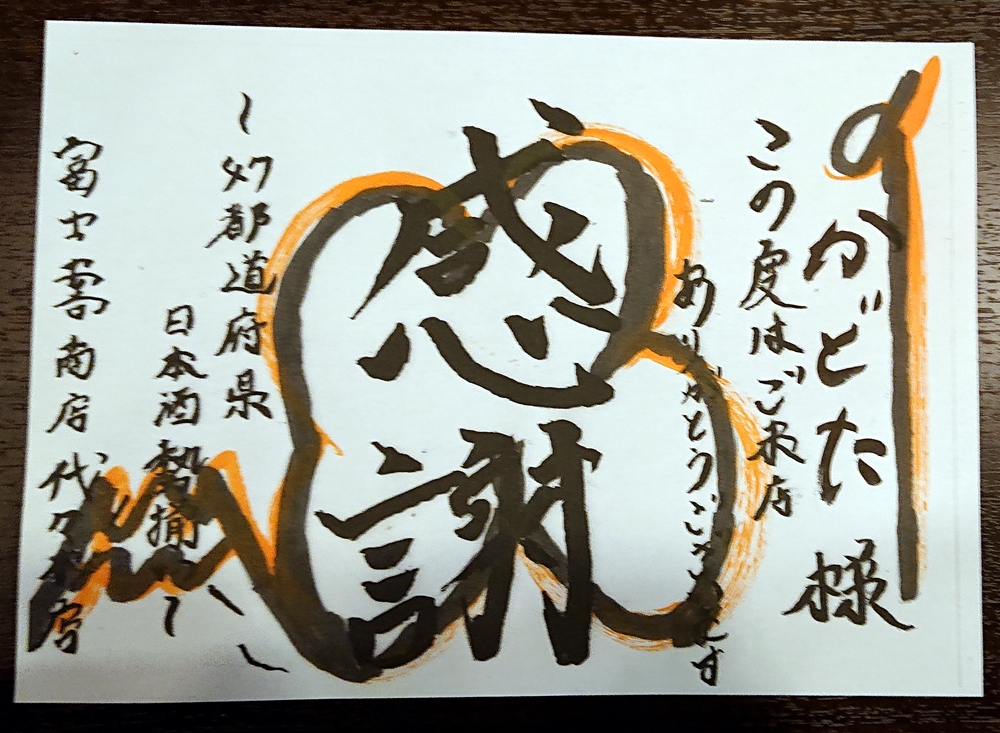 かどた 様
この度はご来店
ありがとうございます
感謝
~47都道府県
日本酒勢揃い~
富士喜商店 代々木店